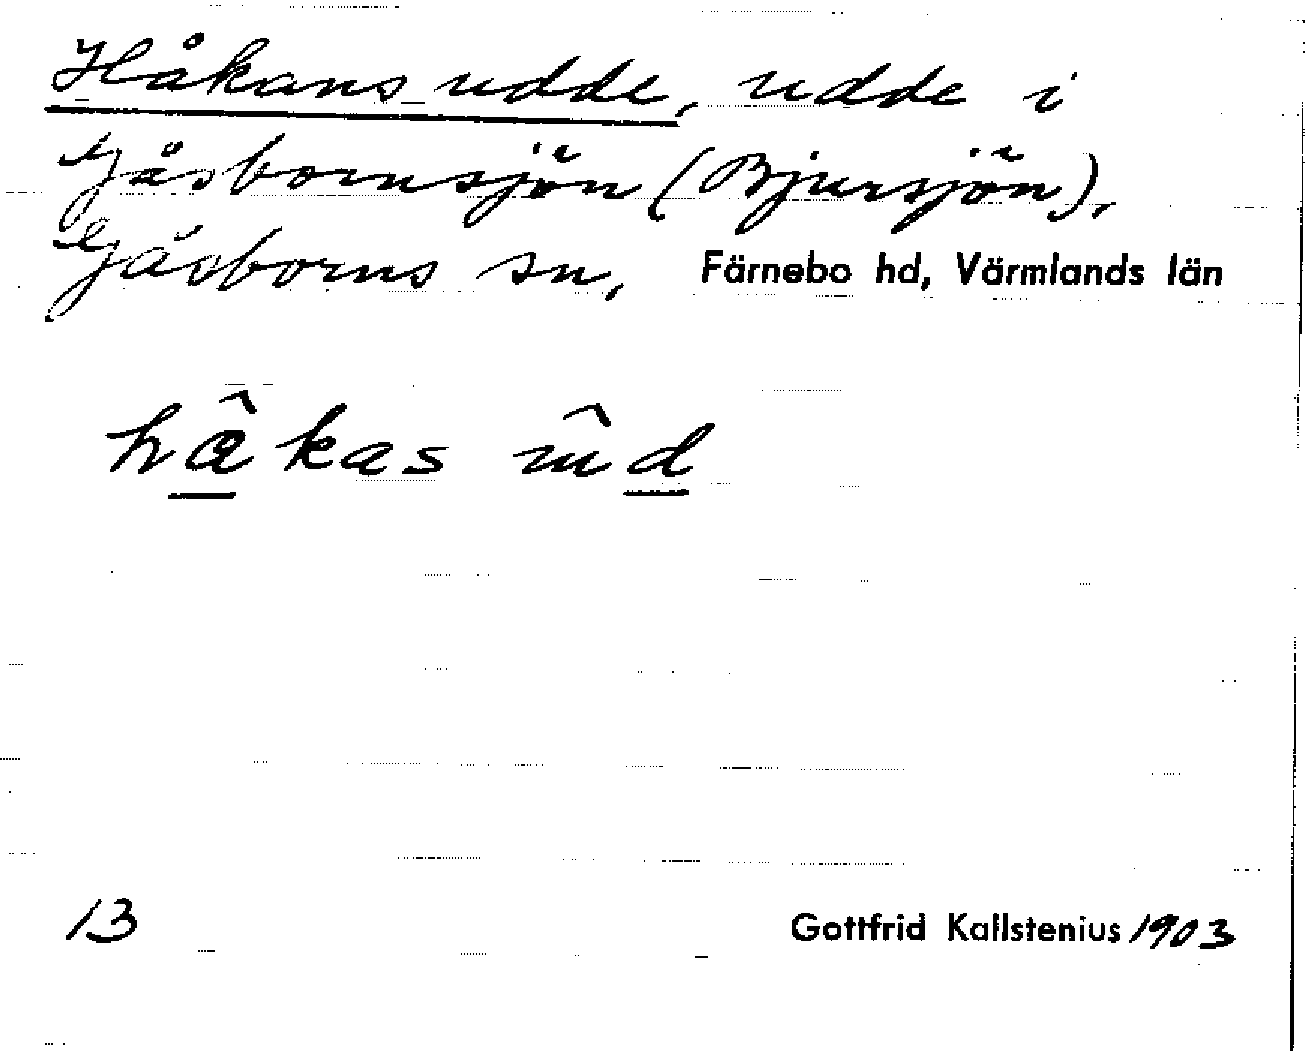 Håkans udde, udde i
Gåsbornsjön (Bjursjön),
Gåsborns sn, Färnebo hd, Värmlands län
hâkas ûd
13 Gottfrid Kallstenius 1903